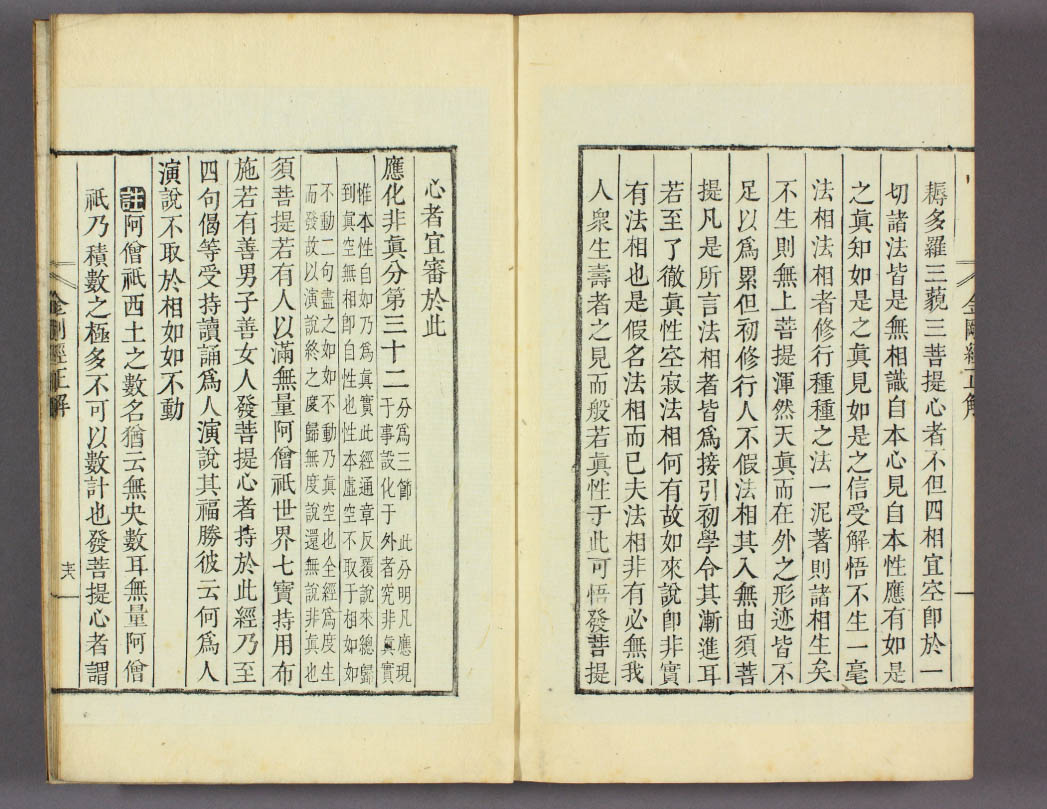 耨多羅三藐三菩提心者不但四相宜空卽於一
切諸法皆是無相識自本心見自本性應有如是
之眞知如是之眞見如是之信受解悟不生一毫
法相法相者修行種種之法一泥著則諸相生矣
不生則無上菩提渾然天眞而在外之形迹皆不
足以爲累但初修行人不假法相其入無由須菩
提凡是所言法相者皆爲接引初學令其漸進耳
若至了徹眞性空寂法相何有故如來說卽非實
有法相也是假名法相而已夫法相非有必無我
人衆生壽者之見而般若眞性于此可悟發菩提
心者宜審於此
應化非眞分第三十二
分爲三節 此分明凡應現
于事設化于外者究非眞實
惟本性自如乃爲眞實此經通章反覆說來總歸
到眞空無相卽自性也性本虛空不取于相如如
不動二句盡之如如不動乃眞空也全經爲度生
而發故以演說終之度歸無度說還無說非眞也
須菩提若有人以滿無量阿僧祇世界七寶持用布
施若有善男子善女人發菩提心者持於此經乃至
四句偈等受持讀誦爲人演說其福勝彼云何爲人
演說不取於相如如不動
註阿僧祇西土之數名猶云無央數耳無量阿僧
祇乃積數之極多不可以數計也發菩提心者謂
金剛經正解